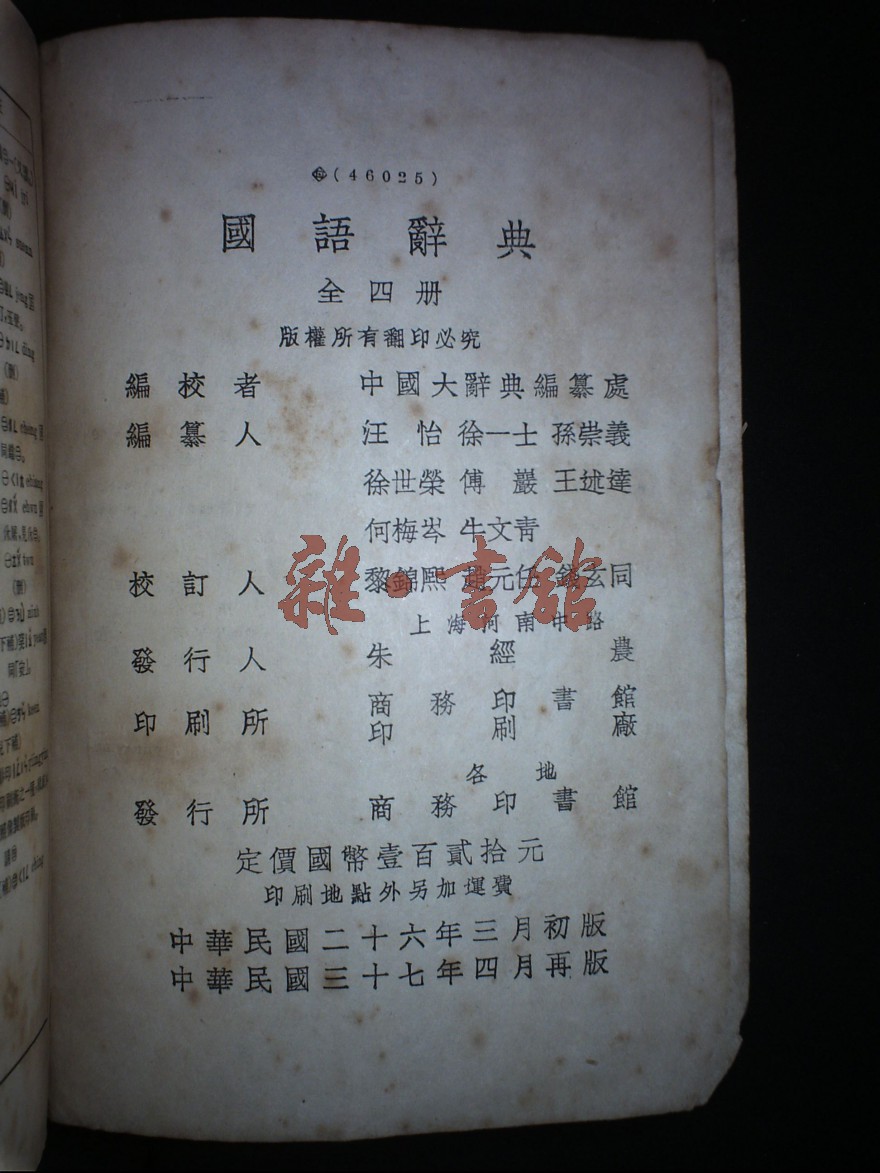 (46025)
國語辭典
全四册
版權所有翻印必究
編校者 中國大辭典編纂處
編纂人 汪怡 徐一士 孫崇義
徐世榮 傅巖 王述達
何梅岑 牛文青
校訂人 黎錦熙 趙元任 錢玄同
上海河南中路
發行人 朱經農
印刷所 商務印書館
印刷廠
各地
發行所 商務印書館
定價國幣壹百貳拾元
印刷地點外另加運費
中華民國二十六年三月初版
中華民國三十七年四月再版
雜·書館